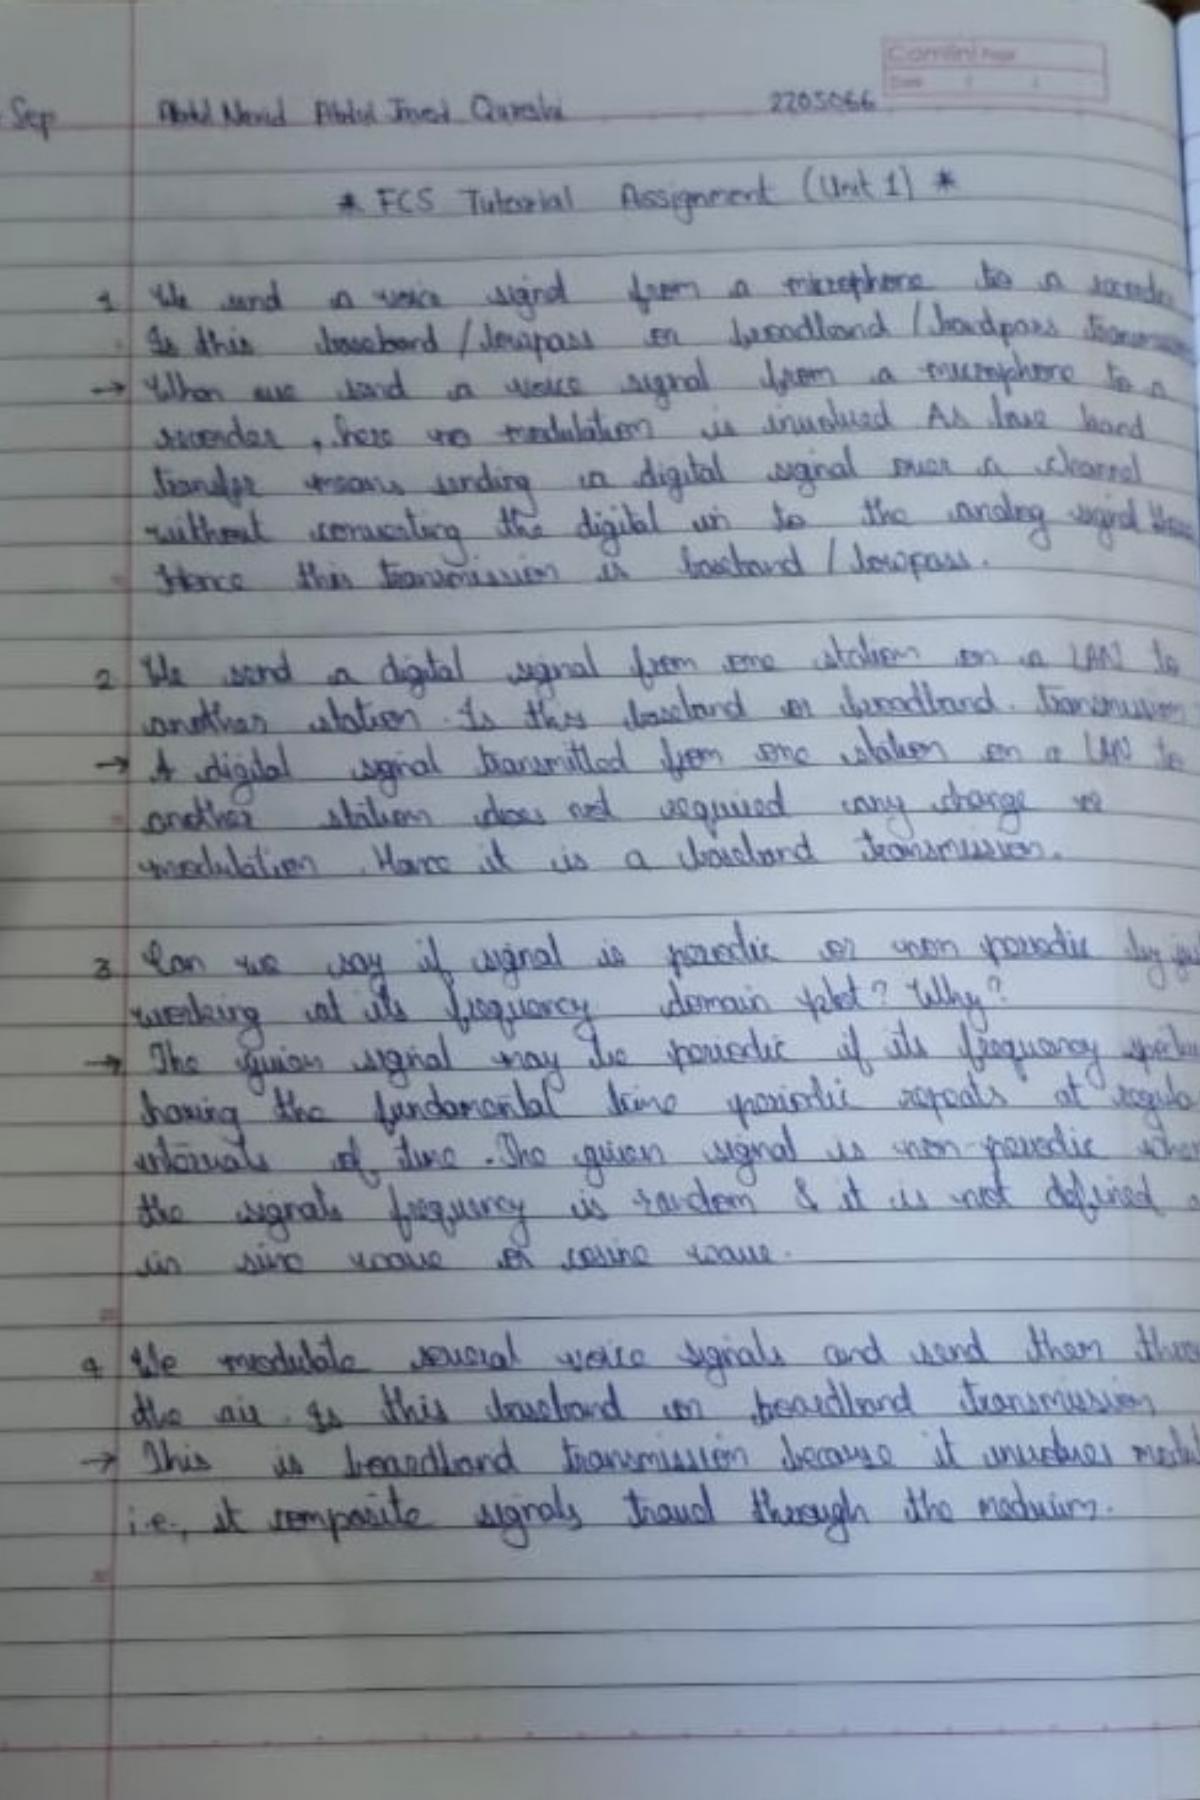 Sep Abdul Abdul Javed Qureshi 2205066
Camlin Page
Date / /
* FCS Tutorial Assignment (Unit 1) *
1 We send a voice signal from a microphone to a recorder
Is this baseband / lowpass or broadband / bandpass
→ When we send a voice signal from a microphone to a
recorder, here no modulation is involved As base band
transfer means sending a digital signal over a channel
without converting the digital to the analog signal
Hence this transmission is baseband / lowpass.
2 We send a digital signal from one station on a LAN to
another station. Is this baseband or broadband. transmission
→ A digital signal transmitted from one station on a LAN to
another station does not required any change
modulation. Hence it is a baseband transmission.
3 Can we say if signal is periodic or non periodic by
working at its frequency domain plot? Why?
→ The given signal may be periodic if its frequency
having the fundamental time periodic repeats at
intervals of time. The given signal is non-periodic
the signals frequency is random & it is not defined
in sine wave or cosine wave.
4 We modulate several voice signals and send them
the air. Is this baseband or boardband transmission
→ This is boardband transmission because it involves
i.e., it composite signals travel through the meduium.